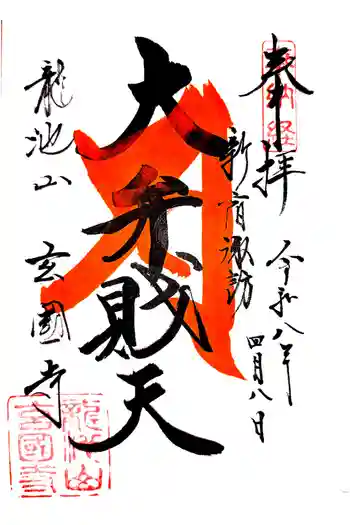 奉拝
奉納経
令和八年
四月八日
新宿諏訪
大弁財天
龍池山 玄國寺
龍池山
玄國寺